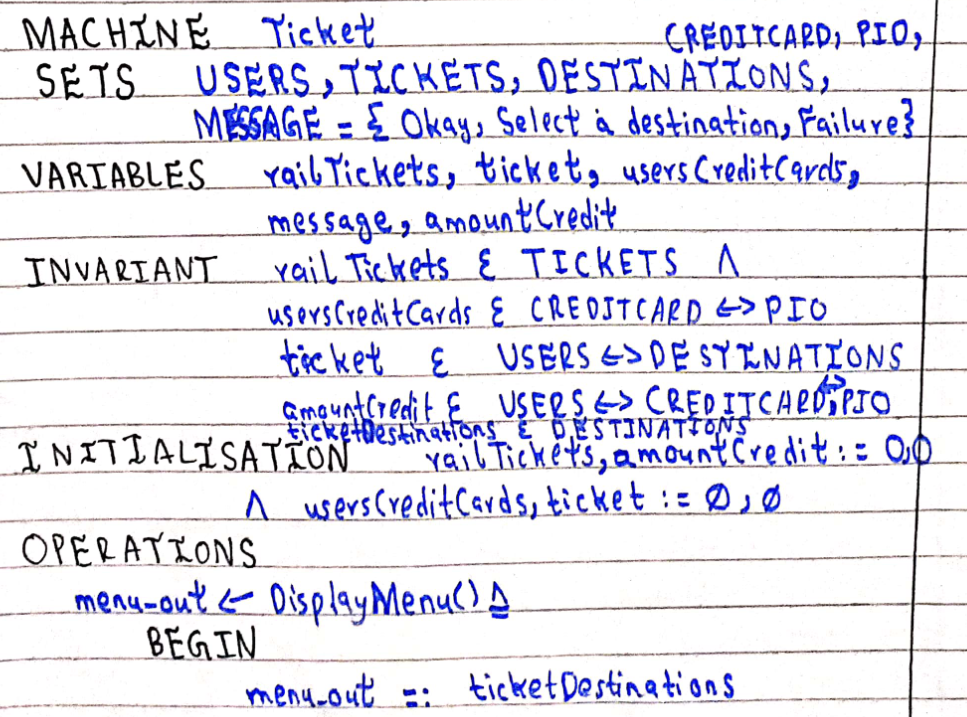 MACHINE Ticket CREDITCARD, PIO,
SETS USERS, TICKETS, DESTINATIONS,
MESSAGE = { Okay, Select a destination, Failure}
VARIABLES railTickets, ticket, usersCreditCards,
message, amountCredit
INVARIANT railTickets ε TICKETS ∧
usersCreditCards ε CREDITCARD <-> PIO
ticket ε USERS <-> DESTINATIONS
amountCredit ε USERS <-> CREDITCARD <-> PIO
ticketDestinations ε DESTINATIONS
INITIALISATION railTickets, amountCredit := 0,0
∧ usersCreditCards, ticket := ∅, ∅
OPERATIONS
menu-out <- DisplayMenu() ≙
BEGIN
menu-out =: ticketDestinations